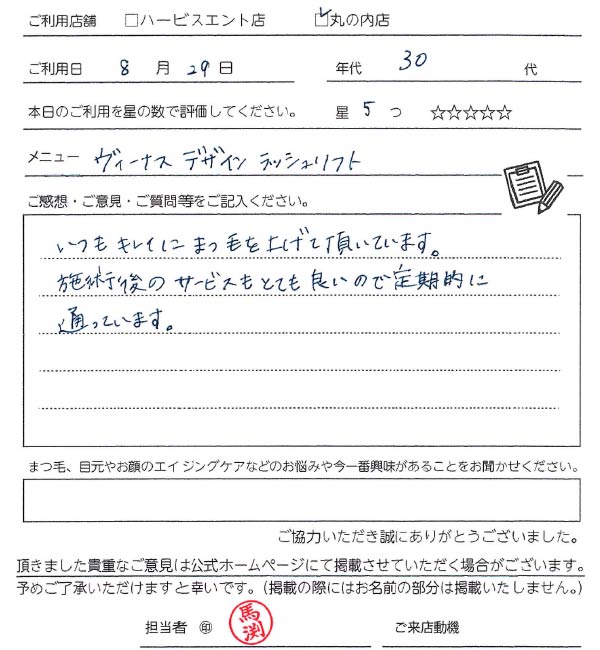 ご利用店舗 □ハービスエント店 ☑丸の内店
ご利用日 8 月 29 日 年代 30 代
本日のご利用を星の数で評価してください。 星 5 つ ☆☆☆☆☆
メニュー ヴィーナス デザイン ラッシュリフト
ご感想・ご意見・ご質問等をご記入ください。
いつもキレイにまつ毛を上げて頂いています。
施術後のサービスもとても良いので定期的に
通っています。
まつ毛、目元やお顔のエイジングケアなどのお悩みや今一番興味があることをお聞かせください。
ご協力いただき誠にありがとうございました。
頂きました貴重なご意見は公式ホームページにて掲載させていただく場合がございます。
予めご了承いただけますと幸いです。(掲載の際にはお名前の部分は掲載いたしません。)
担当者 ㊞ 馬渕 ご来店動機